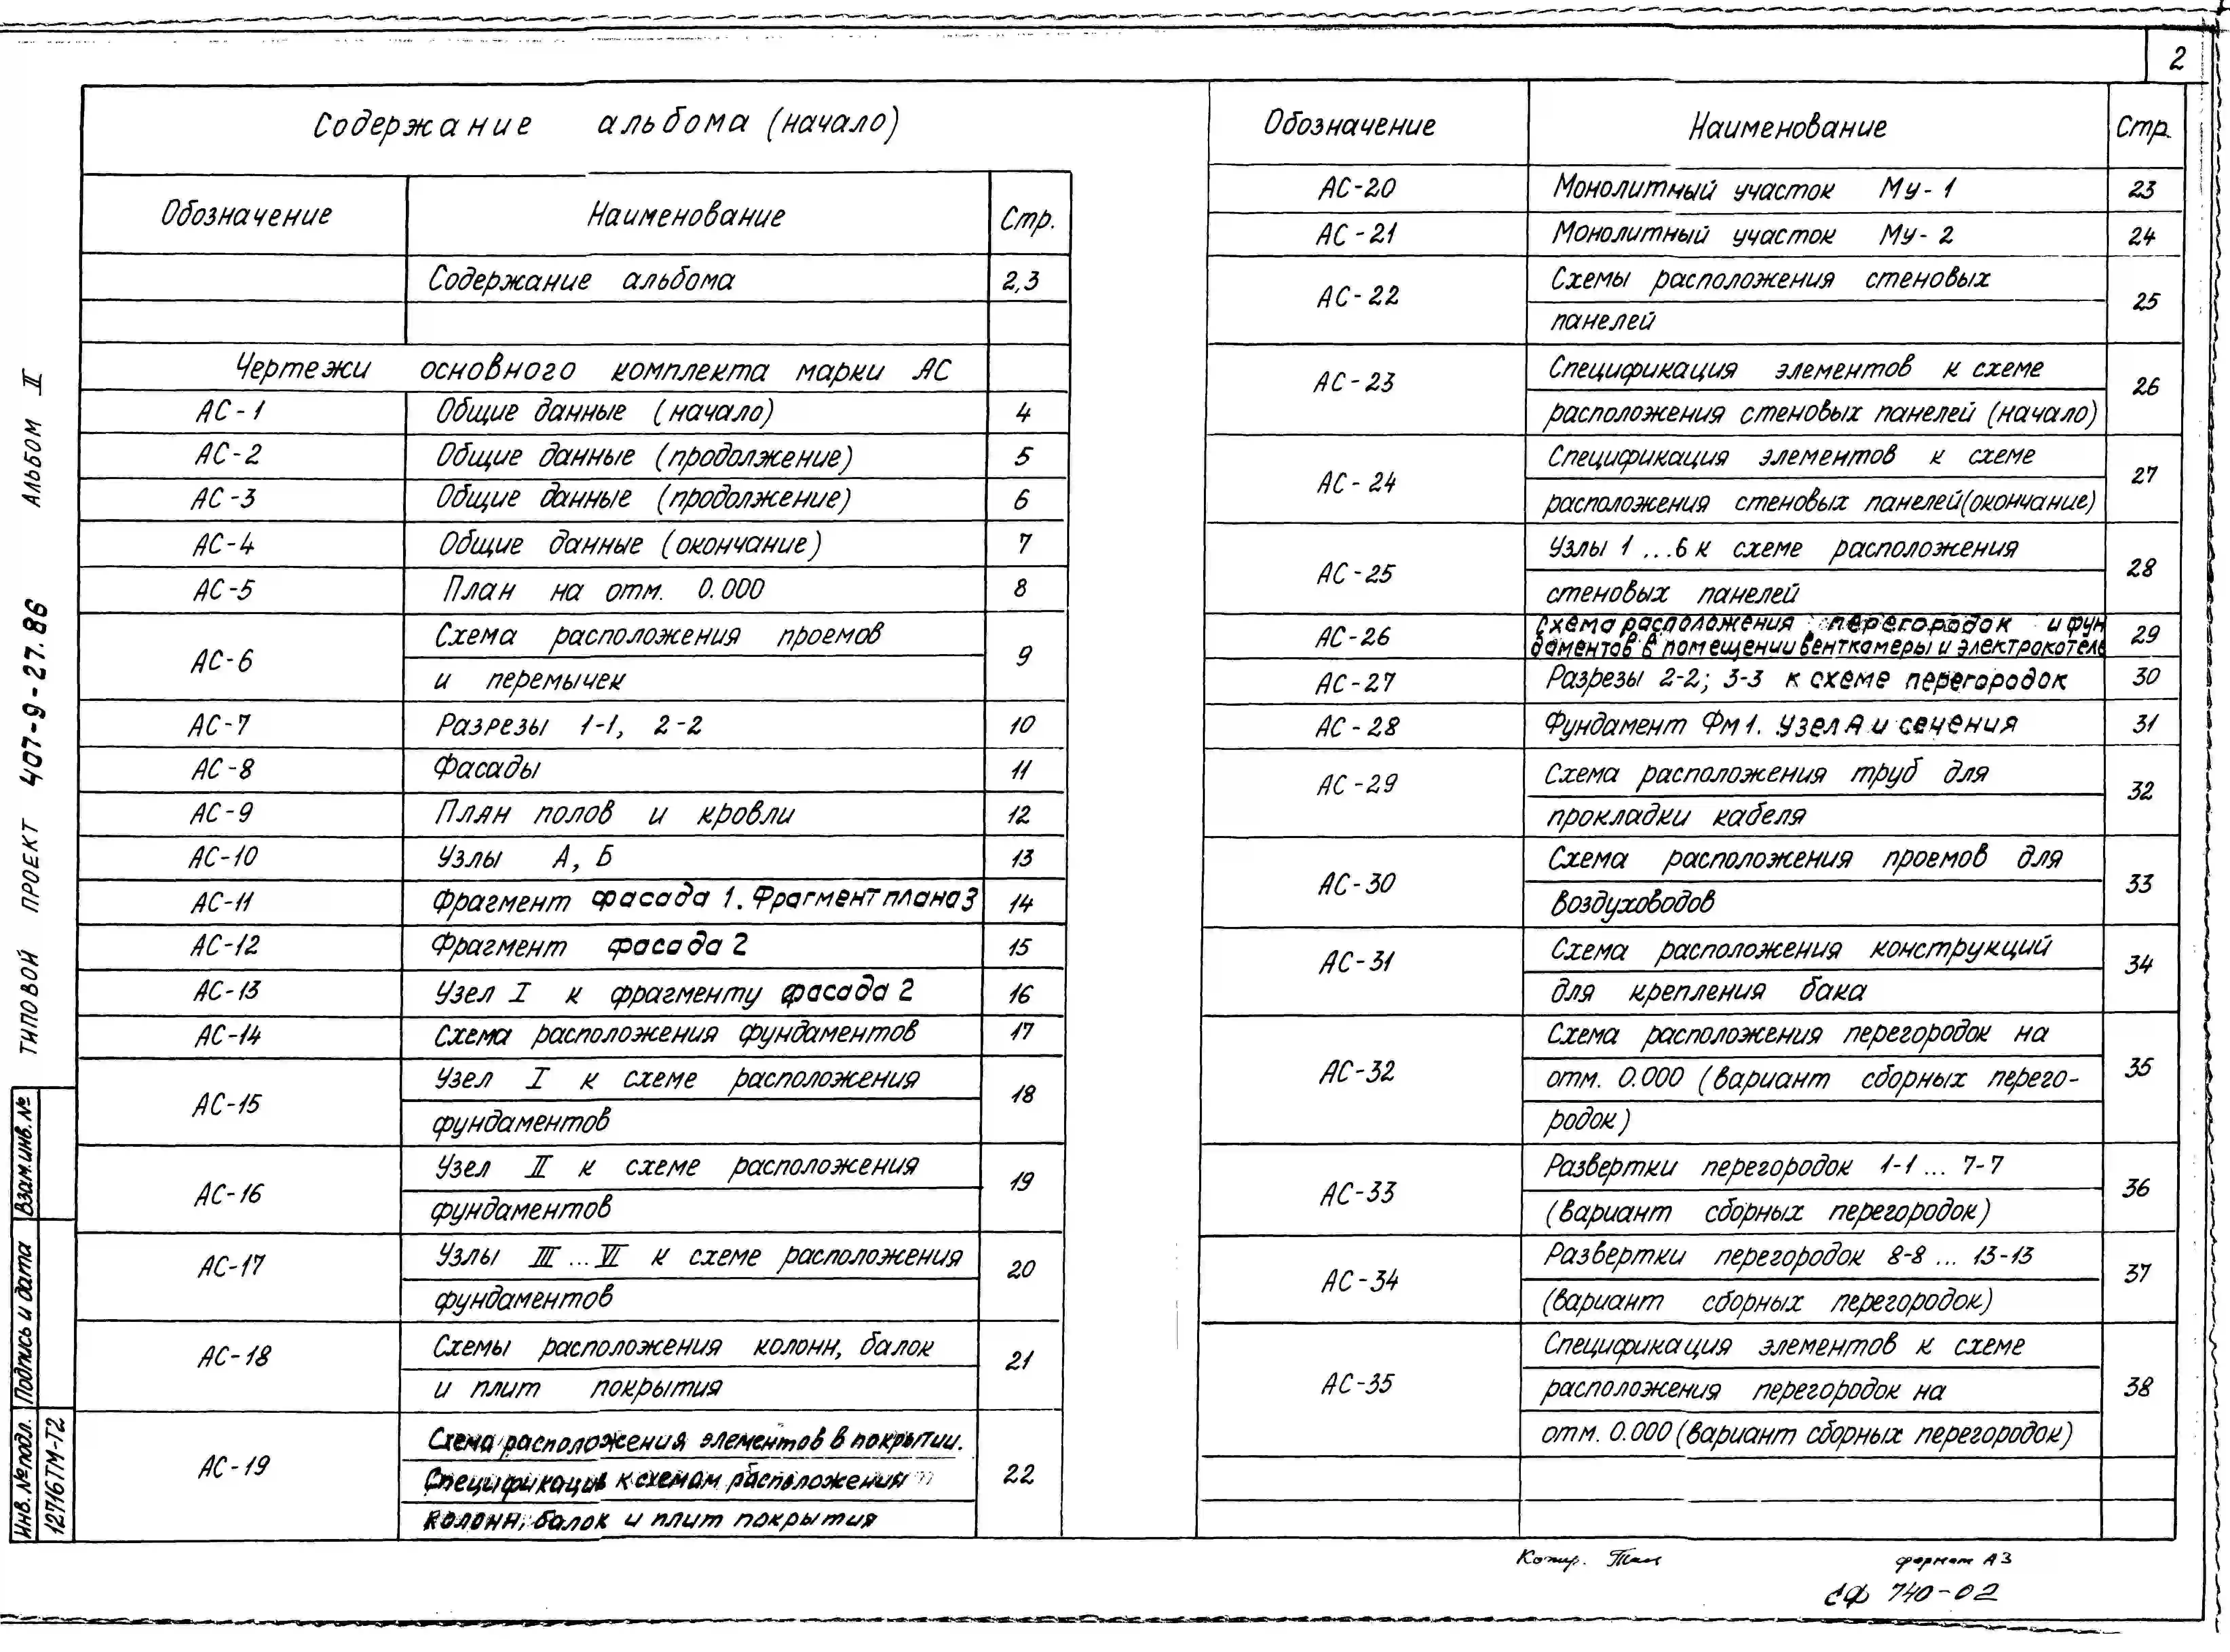 2
Содержание альбома (начало)
Обозначение Наименование Стр.
Содержание альбома 2,3
Чертежи основного комплекта марки АС
АС-1 Общие данные (начало) 4
АС-2 Общие данные (продолжение) 5
АС-3 Общие данные (продолжение) 6
АС-4 Общие данные (окончание) 7
АС-5 План на отм. 0.000 8
АС-6 Схема расположения проемов 9
и перемычек
АС-7 Разрезы 1-1, 2-2 10
АС-8 Фасады 11
АС-9 План полов и кровли 12
АС-10 Узлы А, Б 13
АС-11 Фрагмент фасада 1. Фрагмент плана 3 14
АС-12 Фрагмент фасада 2 15
АС-13 Узел I к фрагменту фасада 2 16
АС-14 Схема расположения фундаментов 17
АС-15 Узел I к схеме расположения 18
фундаментов
АС-16 Узел II к схеме расположения 19
фундаментов
АС-17 Узлы III ... VI к схеме расположения 20
фундаментов
АС-18 Схемы расположения колонн, балок 21
и плит покрытия
АС-19 Схема расположения элементов в покрытии. 22
Спецификация к схемам расположения
колонн, балок и плит покрытия
Обозначение Наименование Стр.
АС-20 Монолитный участок Му-1 23
АС-21 Монолитный участок Му-2 24
АС-22 Схемы расположения стеновых 25
панелей
АС-23 Спецификация элементов к схеме 26
расположения стеновых панелей (начало)
АС-24 Спецификация элементов к схеме 27
расположения стеновых панелей (окончание)
АС-25 Узлы 1 ...6 к схеме расположения 28
стеновых панелей
АС-26 Схема расположения перегородок и фун 29
даментов в помещении венткамеры и электрокотель
АС-27 Разрезы 2-2; 3-3 к схеме перегородок 30
АС-28 Фундамент Фм1. Узел А и сечения 31
АС-29 Схема расположения труб для 32
прокладки кабеля
АС-30 Схема расположения проемов для 33
воздуховодов
АС-31 Схема расположения конструкций 34
для крепления бака
АС-32 Схема расположения перегородок на 35
отм. 0.000 (вариант сборных перего-
родок)
АС-33 Развертки перегородок 1-1 ... 7-7 36
(вариант сборных перегородок)
АС-34 Развертки перегородок 8-8 ... 13-13 37
(вариант сборных перегородок)
АС-35 Спецификация элементов к схеме 38
расположения перегородок на
отм. 0.000 (вариант сборных перегородок)
ТИПОВОЙ ПРОЕКТ 407-9-27.86 АЛЬБОМ II
Взам.инв.№
Подпись и дата
Инв.№подл.
12716ТМ-Т2
Копир. формат А3
СФ 740-02